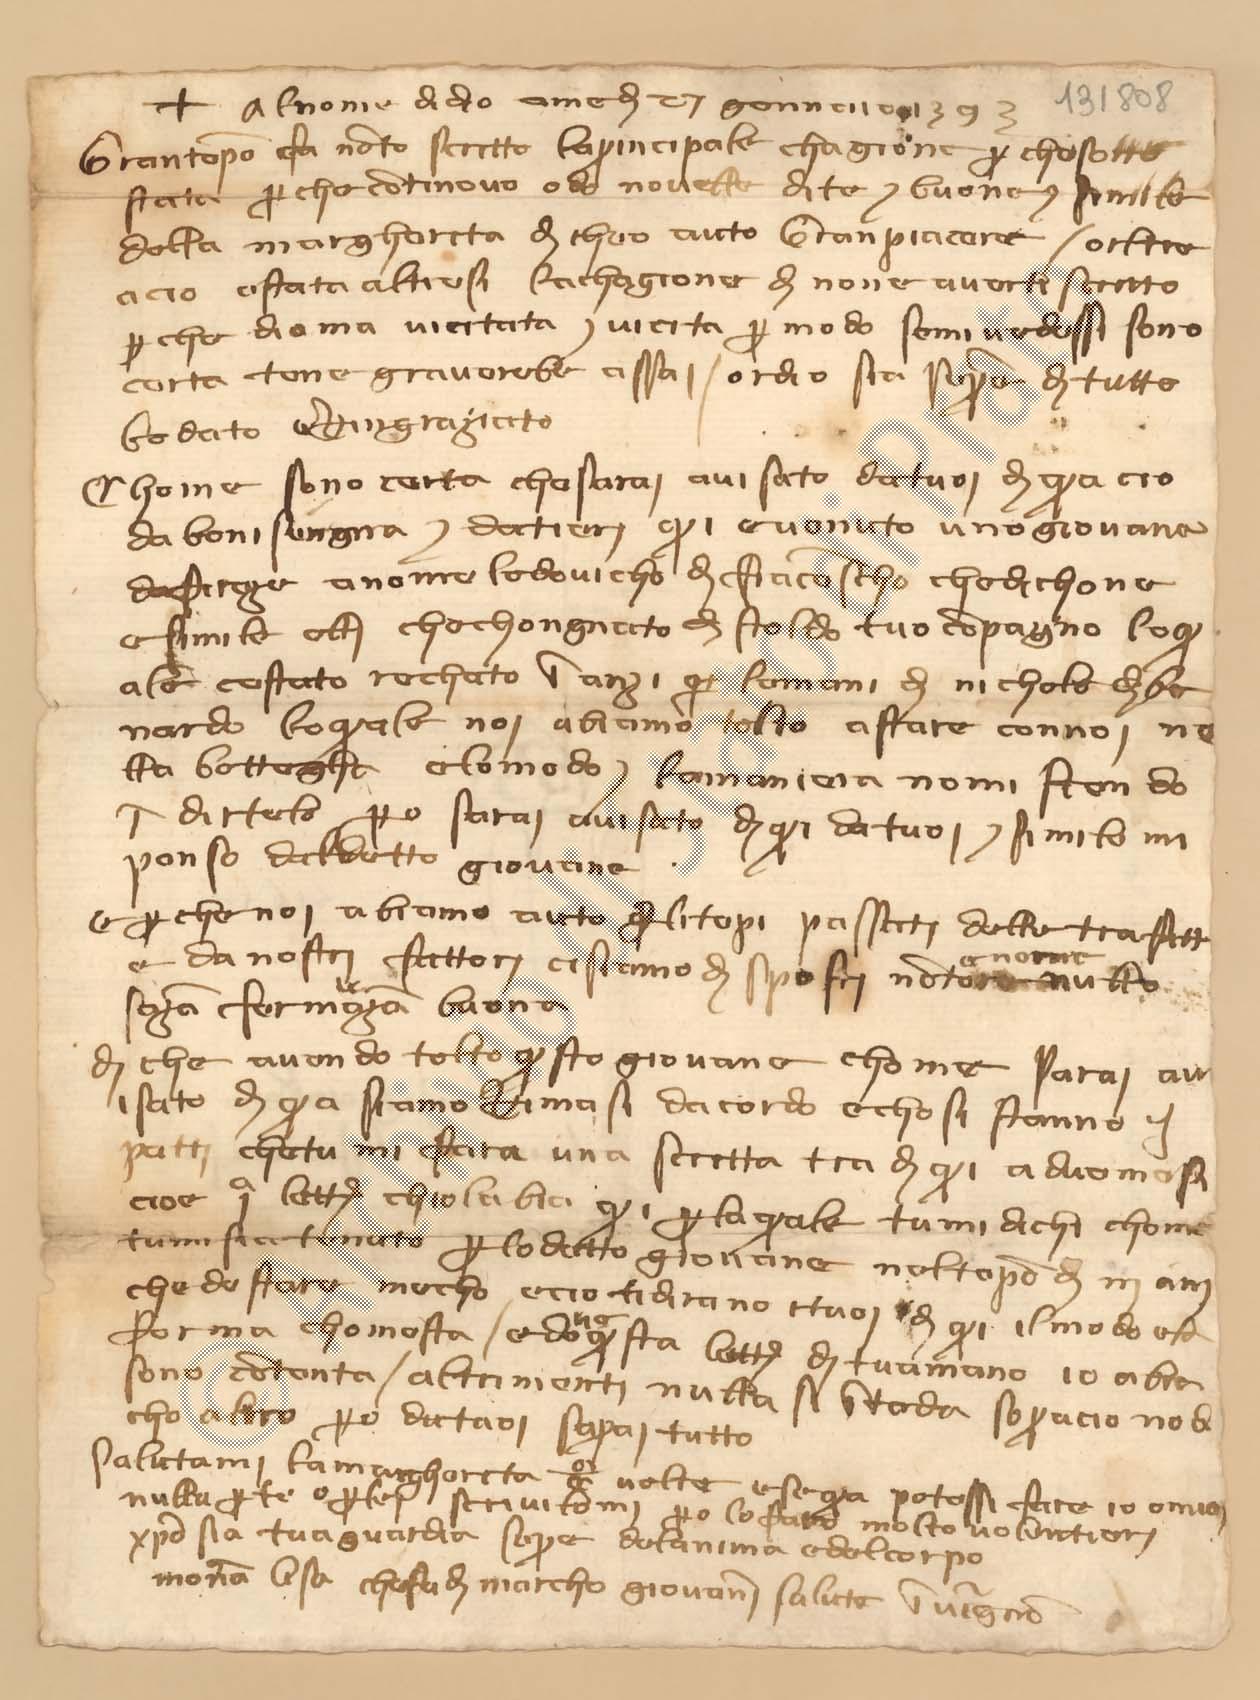 131808
+ Al nome di dio amen di 27 gennaio 1393
Gran tenpo fa non to scritto la principale chagione perche sotte
stata perche chontinovo odo novelle di te e buone e simile
della margherita di cheo auto gran piacere / oltre
a cio e stata altresi la chagione di none averti scritto
perche dio ma vicitata e vicita per modo semi vedessi sono
certa tene graverebe assai / or dio sia senpre di tutto
lodato e ringraziato
Chome sono certa chesarai avisato da tuoi di qua cio
da boninsengnia e da tieri qui e venuto uno giovane
da firenze a nome lodovicho di ser che dichone
e simile elli che chongnato di stoldo tuo conpagno lo qu
ale e stato rechato innanzi per le mani di nicholo di be
nardo lo quale noi abiamo tolto a stare con noi ne
lla bottegha e lo modo e la maniera no mi stendo
i dirtelo pero sarai avisato di qui da tuoi e simile mi
penso dal detto giovane
e perche noi abiamo auto per li tenpi passati delle trafitt
e da nostri fattori ci siamo disposti non torre nullo
senza fermezza buona
di che avendo tolto questo giovane chome sarai av
isato di qua siamo rimasi dacordo e chosi stanno i
patti che tu mi fara una scritta tra di qui a duo mesi
cioe 1a lettera chiolabia qui per la quale tu mi dichi chome
tu mi sia tenuto per lo detto giovane nel tenpo di III anni
che de stare mecho e cio ti dirano i tuoi di qui il modo e la
forma chome sta / ed avuta questa lettera di tua mano io abia
sono chontenta / altrimenti nulla si intenda sopra cio no di
cho altro pero da tuoi saprai tutto
Salutami la margherita 100 volte e se qua potessi fare io o miei
nulla per te o per lei scrivitemi pero lo faro molto volentieri
xpo sia tua guardia senpre delanima e del corpo
monna lisa che fu di marcho giovanni salute in vingnone
© Archivio di Stato di Prato